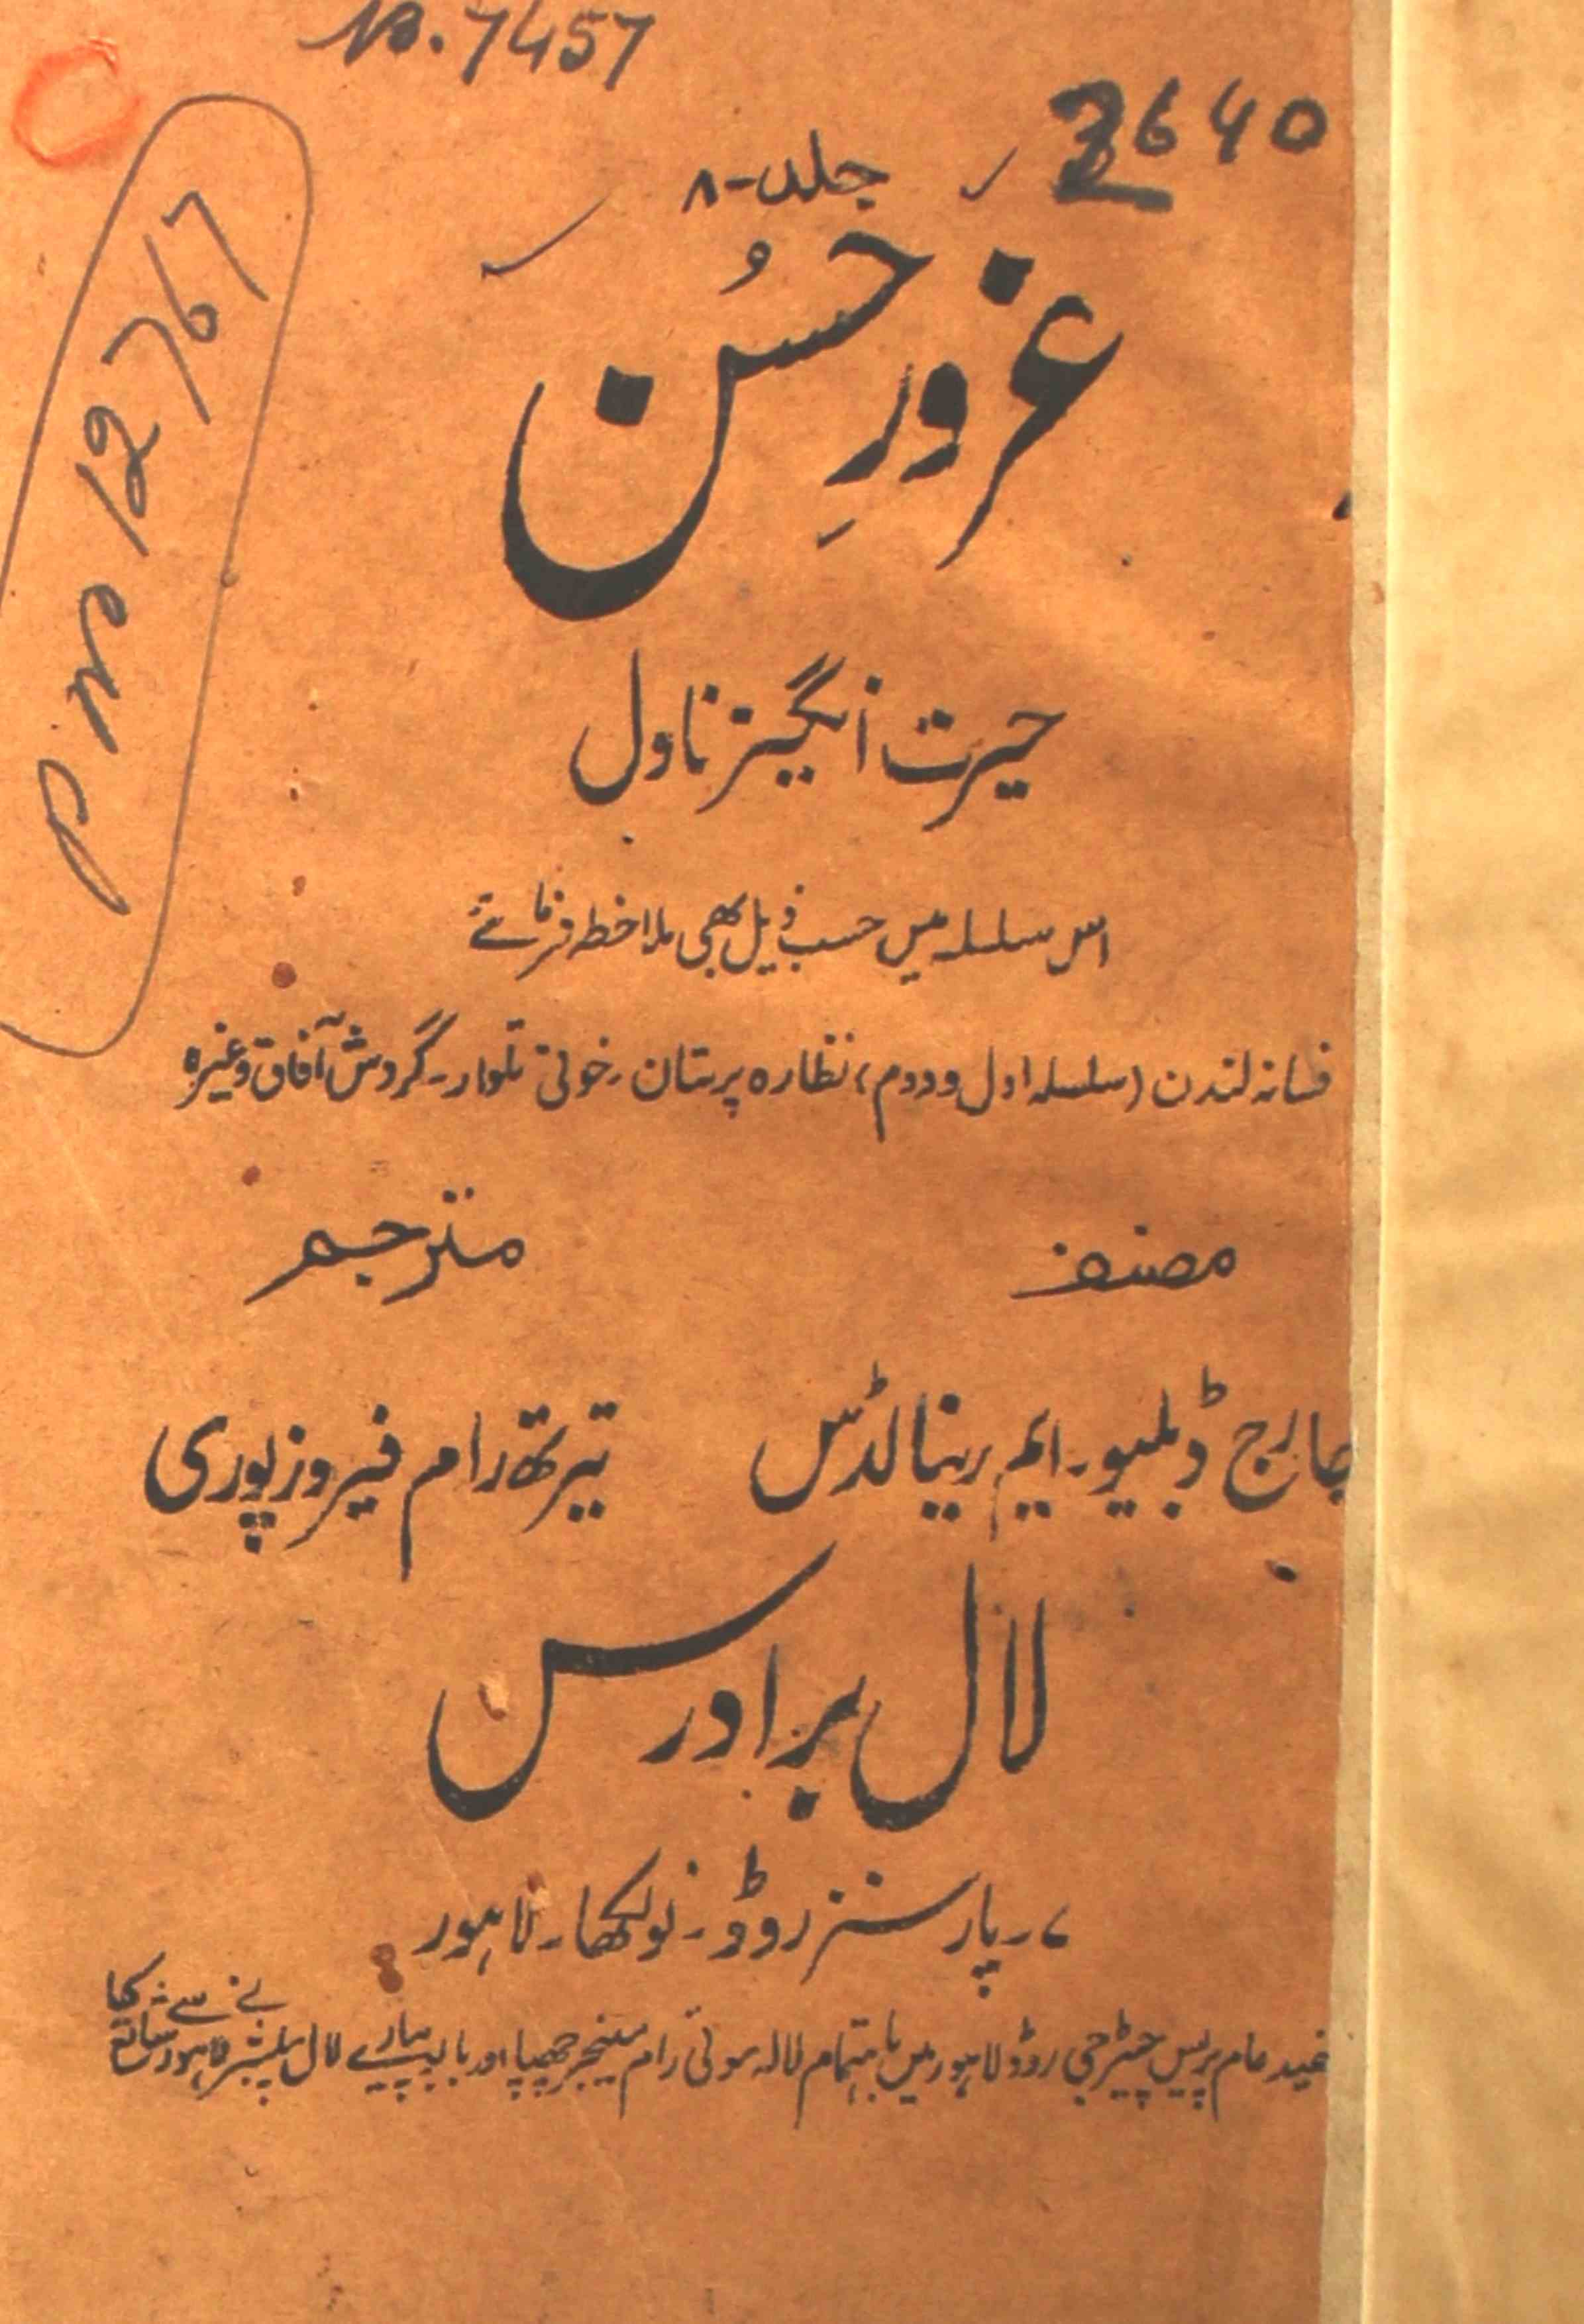 No. 7457
3640
جلد-۸
غرورِ حُسن
حیرت انگیز ناول
اس سلسلہ میں حسب ذیل بھی ملاحظہ فرمائے
فسانہ لندن (سلسلہ اول و دوم) نظارہ پرستان۔ خونی تلوار۔ گردش آفاق وغیرہ
مصنف
مترجم
جارج ڈبلیو۔ ایم رینالڈس
تیرتھ رام فیروز پوری
لال برادرس
۷۔ پارسنز روڈ۔ نولکھا۔ لاہور
مفید عام پریس چیٹرجی روڈ لاہور میں باہتمام لالہ موتی رام مینیجر چھپا اور بابو پیارے لال پبلشر لاہور
P M 12767